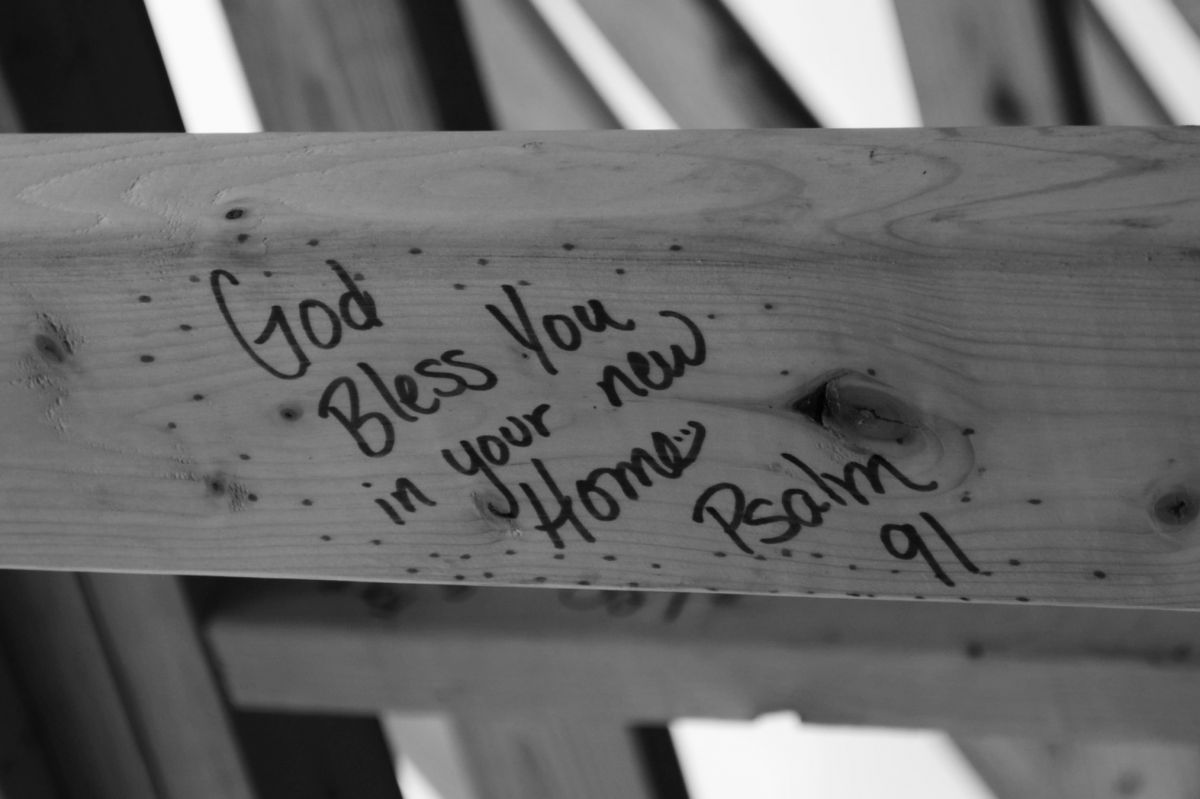 God
Bless You
in your new
Home
Psalm
91